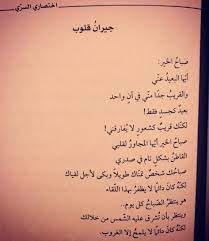 اختصاري السري
جيرانُ قلوب
صباحُ الخير:
أيّها البعيدُ عنّي
والقريبُ جدًا منّي في آنٍ واحد
بعيدٌ كجسد فقط!
لكنّك قريبٌ كشعورٍ لا يُفارقني!
صباحُ الخير أيّها المجاورُ لقلبي
القاطنُ بشكلٍ تام في صدري
صباحُك شخصٌ تمنّاك طويلاً وبكى لأجل لقياك
لكنّهُ كانَ دائمًا لا يظفرُ بهذا اللّقاء
هو ينتظرُ الصّباحَ كل يوم..
وينتظر بأن تُشرق عليه الشّمس من خلالك
لكنّهُ كانَ دائمًا لا يلمحُ إلا الغروب.